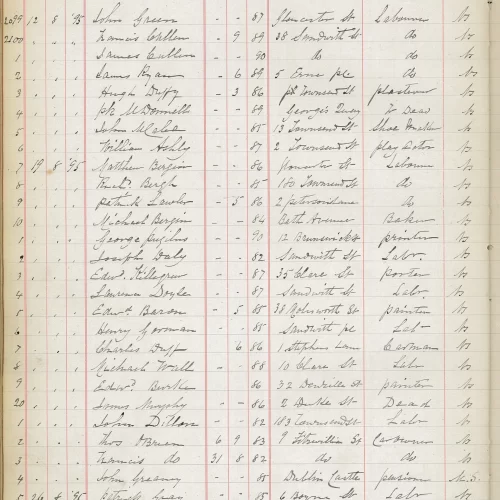 2099 12 8 '95 John Green - - 87 Gloucester St Labourer No
2100 " " " Francis Cullen - 9 89 38 Sandwith St do No
1 " " " James Cullen - - 90 do do No
2 " " " James Ryan - 6 89 5 Erne ple do No
3 " " " Hugh Duffy - 3 86 Townsend St plasterer No
4 " " " Pk McDonnell - - 89 George's Quay Dead No
5 " " " John McCabe - - 85 13 Townsend St Shoe Maker No
6 " " " William Ashly - - 87 2 Townsend St play actor No
7 19 8 '95 Matthew Bergin - - 86 St Labourer No
8 " " " Bergh - - 85 180 Townsend St do No
9 " " " Patrick Lawlor - 5 86 2 Petersons Lane do No
10 " " " Michael Bergin - - 84 Bath Avenue Baker No
1 " " " George - - 90 12 Brunswick St printer No
2 " " " Joseph Daly - - 82 Sandwith St Labr. No
3 " " " Edwd. Killegrew - - 87 35 Clare St porter No
4 " " " Laurence Doyle - - 87 Sandwith St Labr No
5 " " " Edwd. Baron - 5 85 38 Molesworth St painter No
6 " " " Henry Gorman - - 85 Sandwith ple Labr No
7 " " " Charles Duff 6 86 1 Stephens Lane Carman No
8 " " " Michael Wall - - 88 10 Clare St Labr No
9 " " " Edwd. Burke 86 32 Denzille St painter No
20 " " " James Murphy - - 86 2 Duke St Dead No
1 " " " John Dillon - - 82 183 Townsend St Labr No
2 " " " Thos OBrien 6 9 83 9 Fitzwilliam Sq No
3 " " " Francis do 31 8 82 do do No
4 " " " John - - 85 Dublin Castle pensioner
5 26 8 '95 Patrick - - 85 6 St Labr No